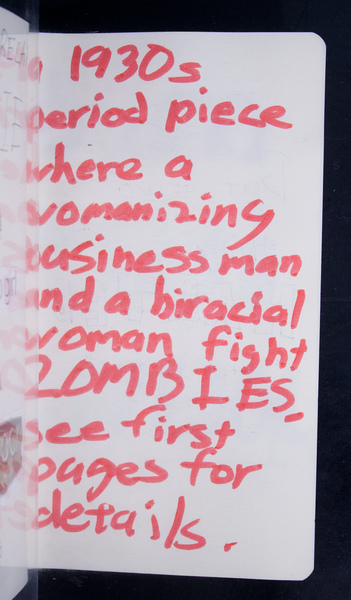 a 1930s
period piece
where a
womanizing
businessman
and a biracial
woman fight
ZOMBIES.
see first
pages for
details.